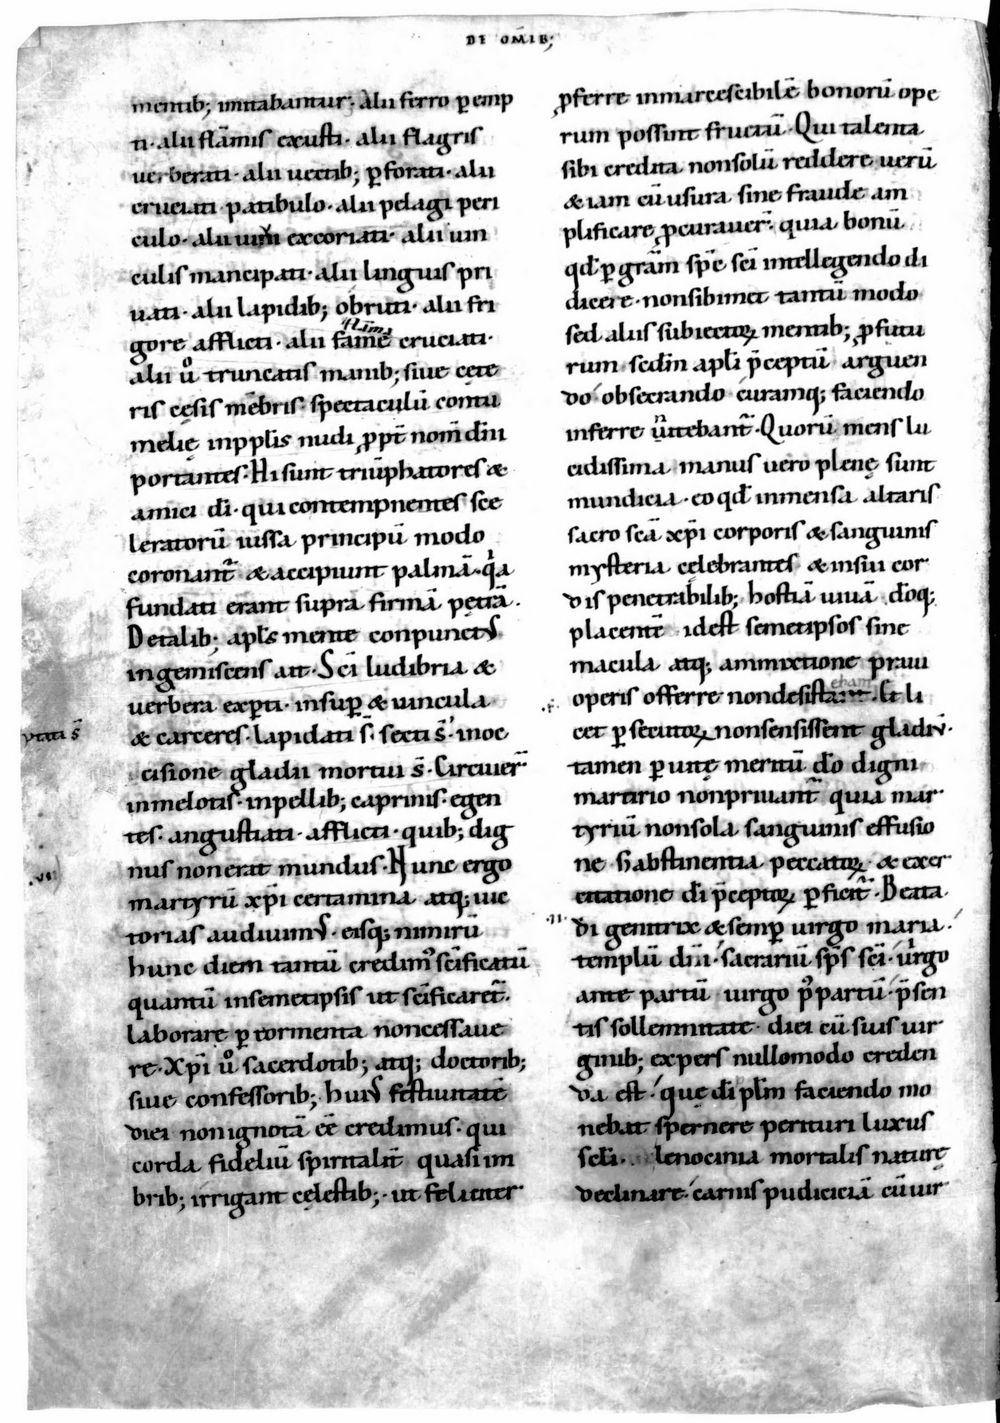 DE OM̄IB;
mentib; imitabantur. Alii ferro ꝑemp
ti. alii flāmis exusti. alii flagris
uerberati. alii uectib; ꝑforati. alii
cruciati patibulo. alii pelagi peri
culo. alii uiui excoriati. alii uin
culis mancipati. alii linguis pri
uati. alii lapidib; obruti. alii fri
gore afflicti. alii fame cruciati.
alii ū truncatis manib; siue cete
ris cęsis mēbris. spectaculū contu
melię inpplīs nudi ꝓpt̄ nom̄ dn̄i
portantes. Hi sunt triūphatores &
amici dī. qui contempnentes sce
leratorū iussa principū modo
coronant᷑ & accipiunt palmā. qa
fundati erant supra firmā petrā.
De talib; apl̄s mente conpunctꝰ
ingemiscens ait. Sc̄i ludibria &
uerbera exꝑti. insuꝑ & uincula
ytati s̄
& carceres. lapidati s̄. secti s̄. inoc
cisione gladii mortui s̄. Circuier̄
inmelotis. inpellib; caprinis. egen
tes. angustiati. afflicti. quib; dig
nus non erat mundus. Nunc ergo
martyrū xp̄i certamina atq; uic
torias audiuimꝰ. eisq; nimirū
hunc diem tantū credimꝰ sc̄ificatū
quantū insemetipsis ut sc̄ificaret᷑.
laborare ꝑ tormenta noncessaue
re. Xp̄i ū sacerdotib; atq; doctorib;
siue confessorib; huiꝰ festiuitatē
diei nonignotā eē credimus. qui
corda fideliū spiritalit̄ quasi im
brib; irrigant cęlestib;. ut feliciter
ꝓferre inmarcescibilē bonorū ope
rum possint fructū. Qui talenta
sibi credita nonsolū reddere uerū
& iam cū usura sine fraude am
plificare ꝓcurauer̄. quia bonū
qd̄ ꝑ grām sp̄c sc̄i intellegendo di
dicere. nonsibimet tantū modo
sed aliis subiectoꝝ mentib; ꝓfutu
rum. sedm̄ apl̄i p̄ceptū arguen
do obsecrando curamq; faciendo
inferre ūitebant᷑. Quorū mens lu
cidissima manus uero plenę sunt
mundicia. eo qd̄ inmensa altaris
sacro scā xp̄i corporis & sanguinis
mysteria cęlebrantes & insui cor
dis penetrabilib; hostiā uiuā dōq;
placentē idest semetipsos sine
macula atq; ammixtione praui
operis offerre nondesistant. Et li
cet ꝑsecutoꝝ nonsensissent gladiū.
tamen ꝑ uitę meritū dō digni
martirio nonpriuant᷑ quia mar
tyriū nonsola sanguinis effusio
ne s; abstinentia peccatoꝝ & exer
citatione dī p̄ceptoꝝ ꝑficit᷑. Beata
dī genitrix & semꝑ uirgo maria.
templū dn̄i. sacrariū sp̄s sc̄i. uirgo
ante partū uirgo pꝰ partū. p̄sen
tis sollemnitate diei cū suis uir
ginib; expers nullomodo creden
da est. que dī plm̄ faciendo mo
nebat spernere perituri luxus
scl̄i. lenocinia mortalis naturę
declinare. carnis pudiciciā cū uir